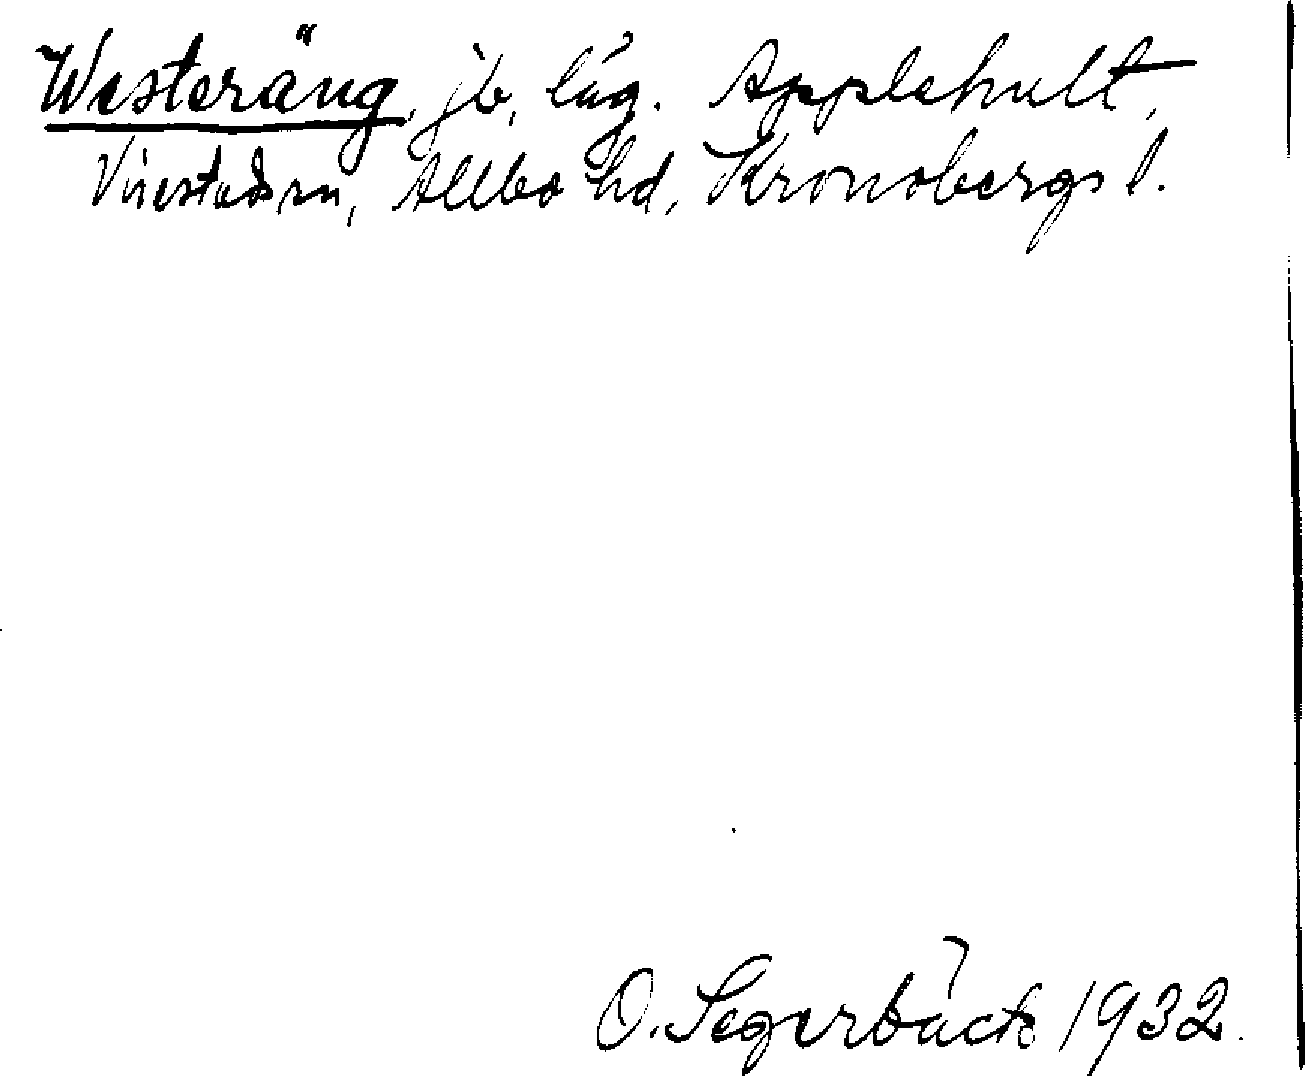 Westeräng, jb, läg. Applehult,
Virestads sn, Allbo hd, Kronobergs l.
O. Segerbäck 1932.